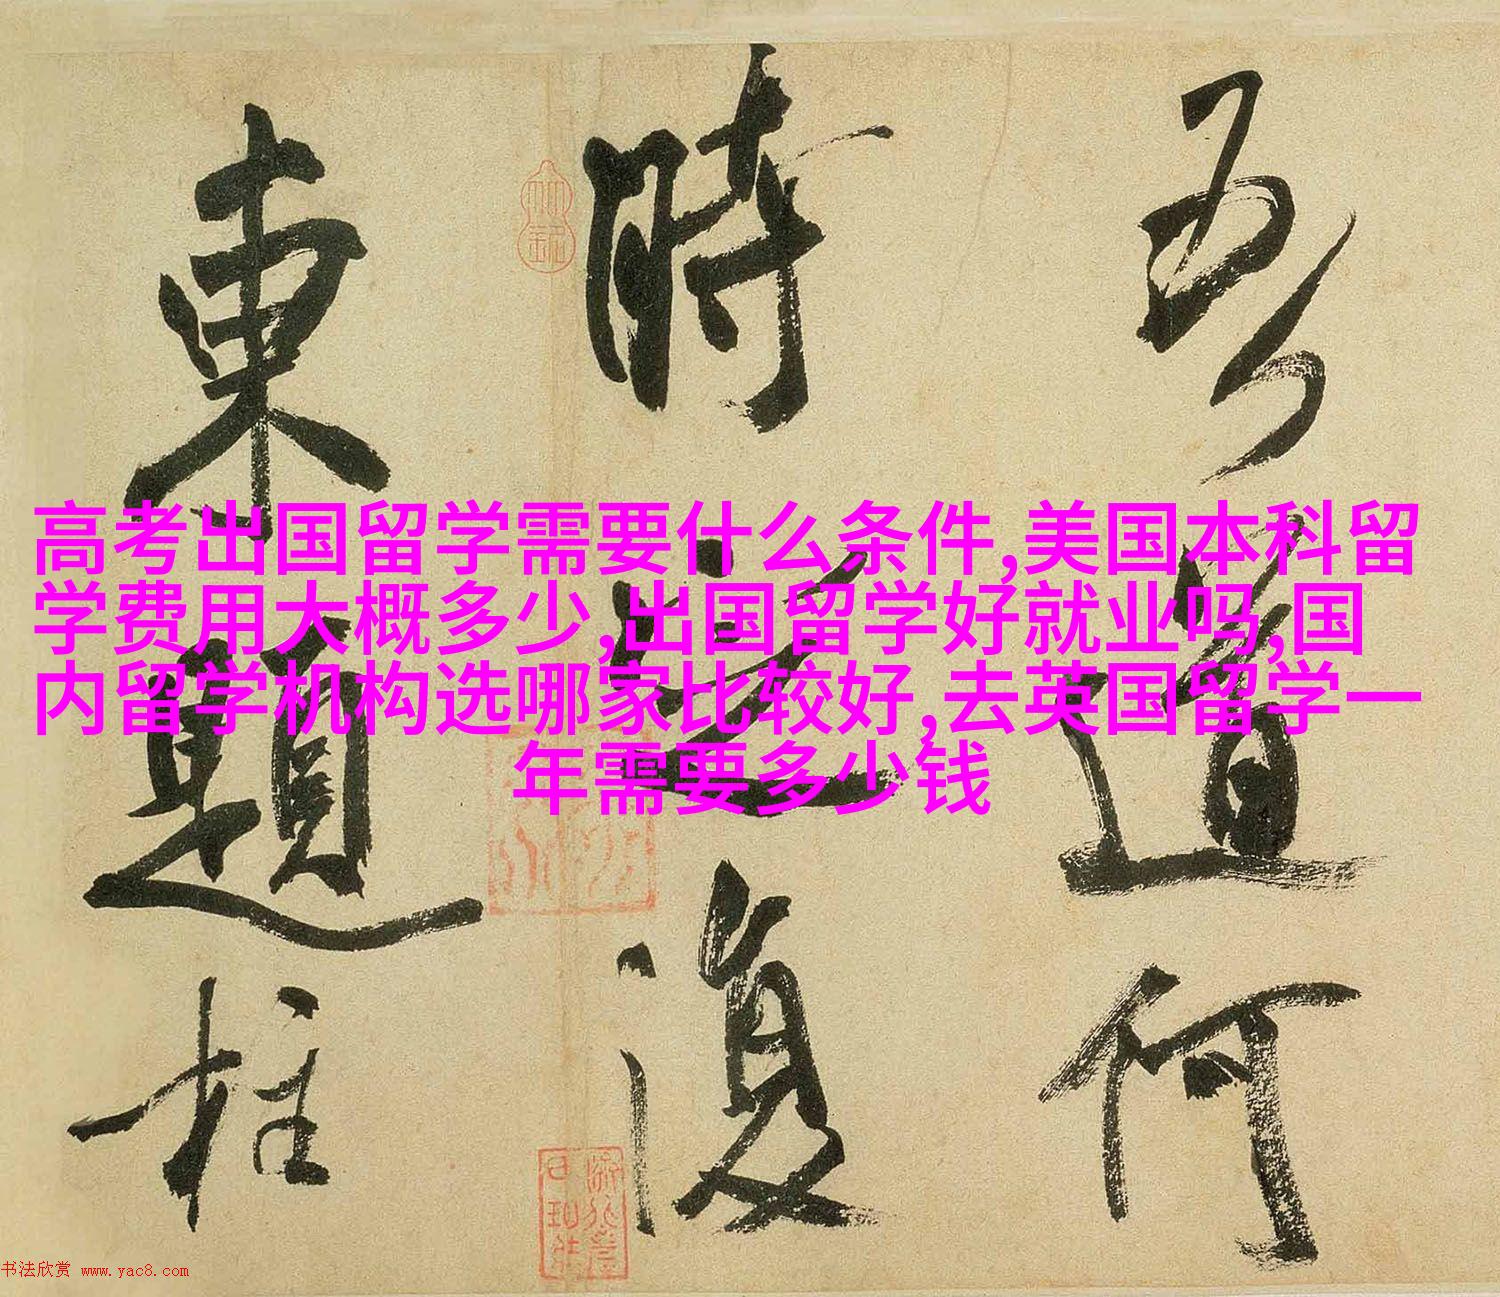 吾道何
時復
東題柱
高考出国留学需要什么条件,美国本科留
学费用大概多少,出国留学好就业吗,国
内留学机构选哪家比较好,去英国留学一
年需要多少钱
书法欣赏 www.yac8.com